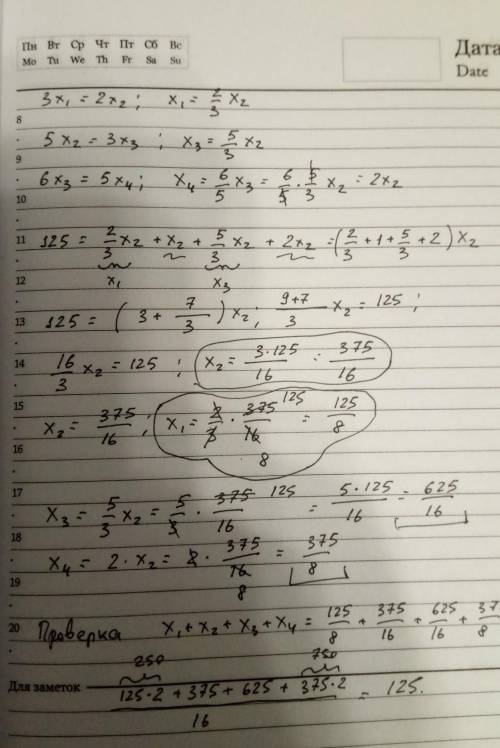 Пн Вт Ср Чт Пт Сб Вс
Mo Tu We Th Fr Sa Su
Дата
Date
3x₁ = 2x₂ ; x₁ = 2/3 x₂
8
5x₂ = 3x₃ ; x₃ = 5/3 x₂
9
6x₃ = 5x₄ ; x₄ = 6/5 x₃ = 6/5 · 5/3 x₂ = 2x₂
10
11 125 = 2/3 x₂ + x₂ + 5/3 x₂ + 2x₂ = (2/3 + 1 + 5/3 + 2) x₂
12 x₁ x₃
13 125 = (3 + 7/3) x₂ ; 9+7/3 x₂ = 125 ;
14 16/3 x₂ = 125 ; x₂ = 3·125/16 = 375/16
15
x₂ = 375/16 ; x₁ = 2/3 · 375/16 125 = 125/8
16 8
17
x₃ = 5/3 x₂ = 5/3 · 375/16 125 = 5·125/16 = 625/16
18
x₄ = 2 · x₂ = 2 · 375/16 = 375/8
19 8
20 Проверка x₁ + x₂ + x₃ + x₄ = 125/8 + 375/16 + 625/16 + 37/8
250 750
Для заметок 125·2 + 375 + 625 + 375·2/16 = 125.